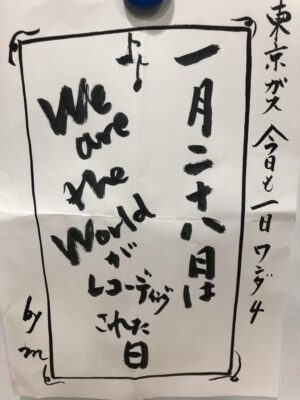 東京ガス 今日も一日ワンダ4
一月二十八日は
♪
We
are
the
World
が
レコーディング
された
日
by m